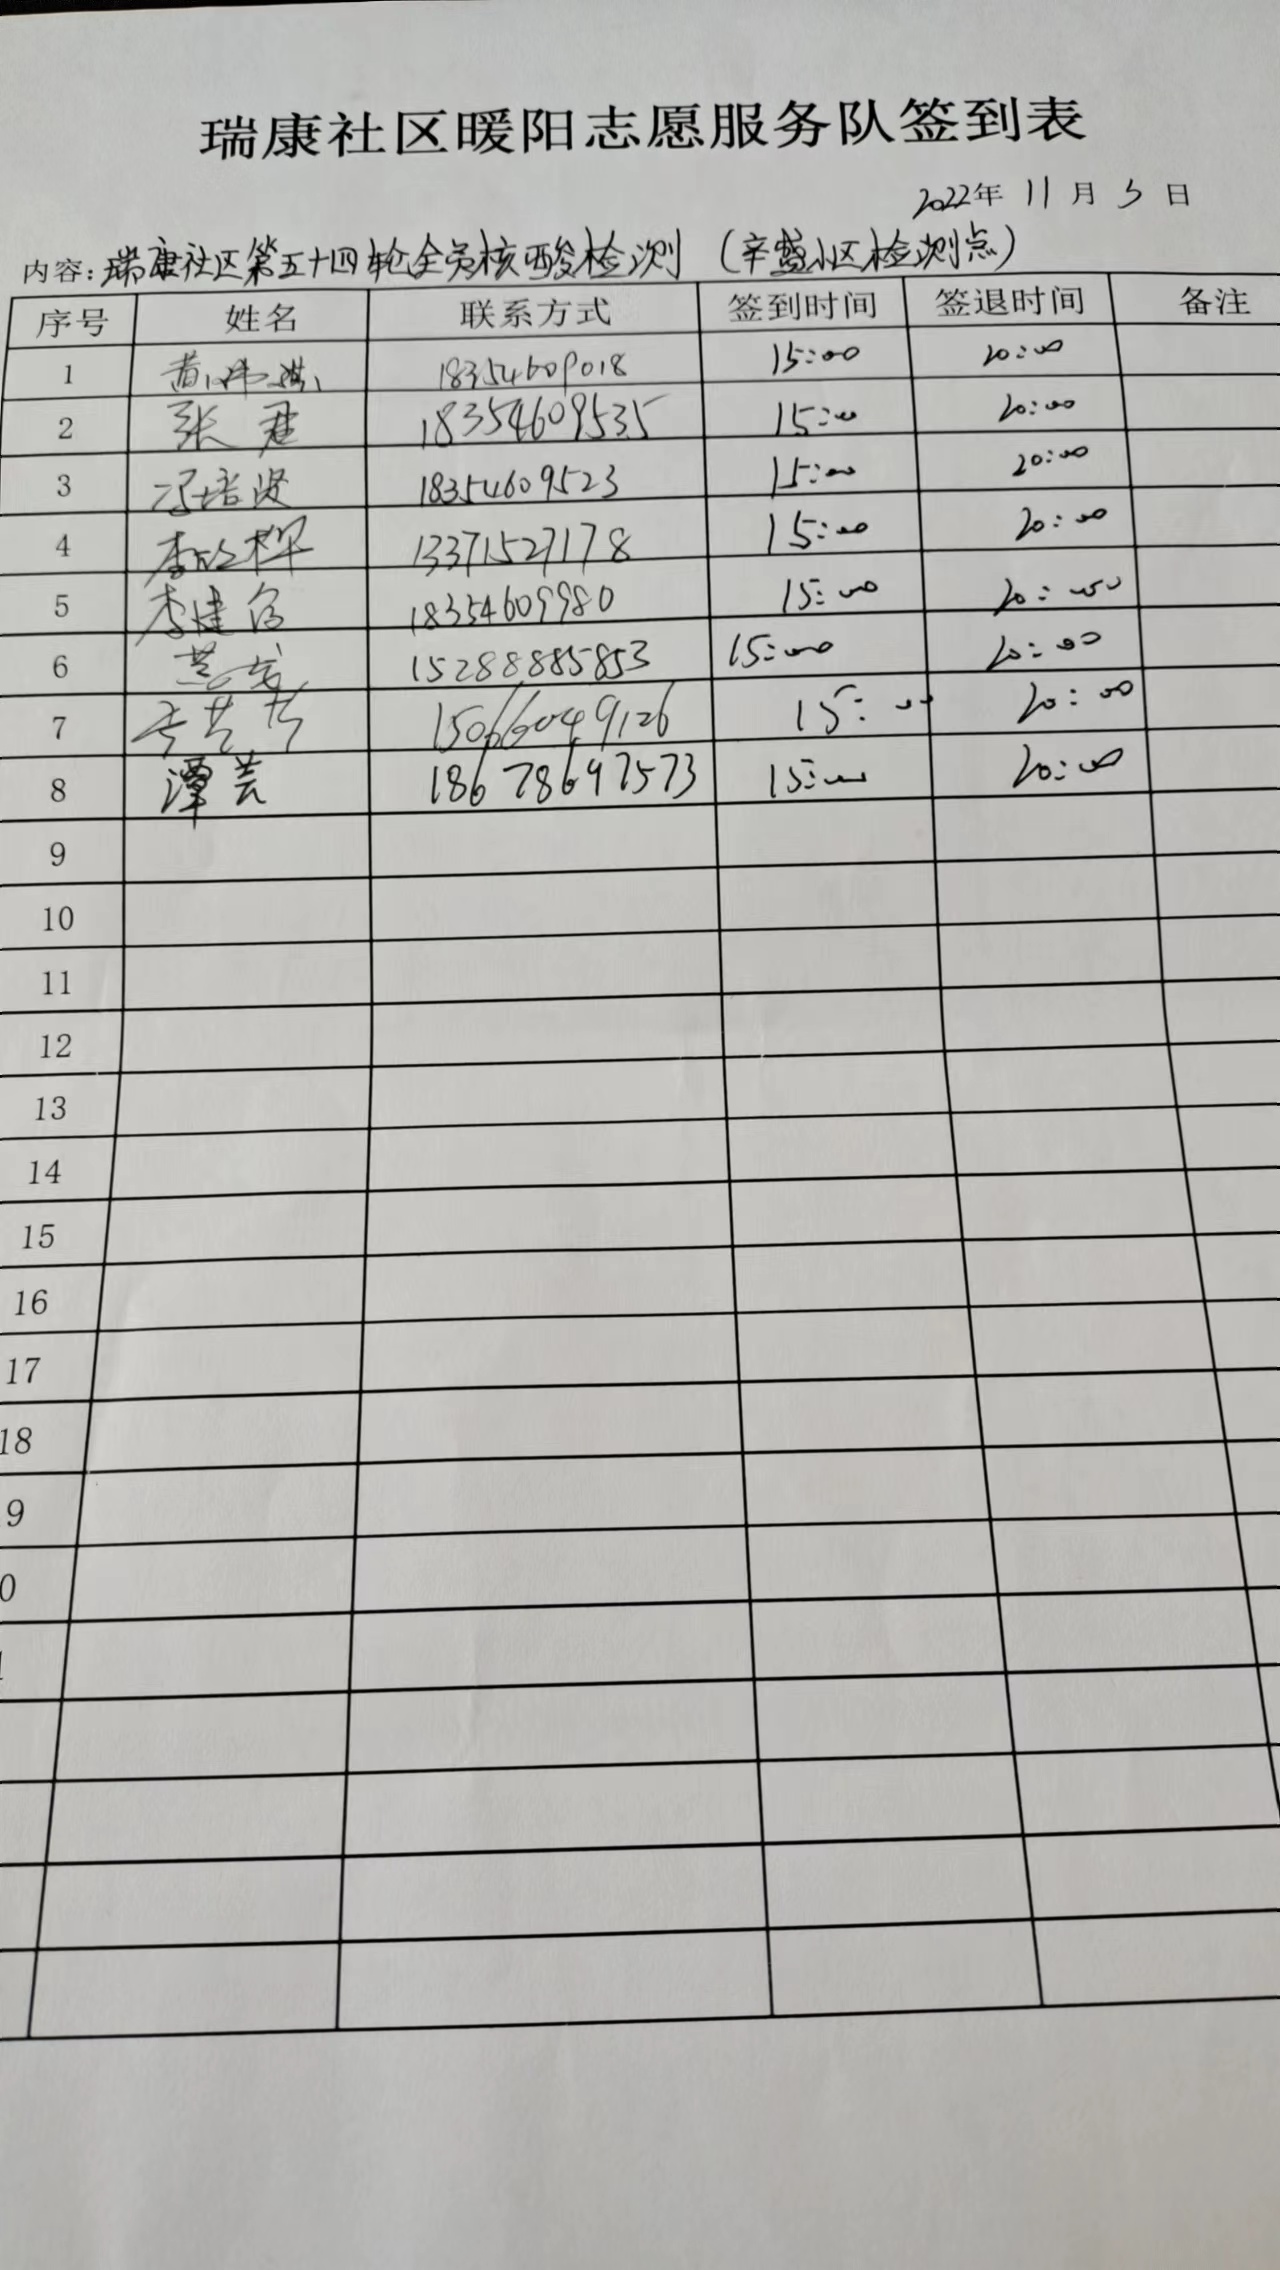 瑞康社区暖阳志愿服务队签到表
2022年 11 月 5 日
内容：瑞康社区第五十四轮全员核酸检测（辛盛小区检测点）
序号 姓名 联系方式 签到时间 签退时间 备注
1 18354609018 15:00 20:00
2 张君 18354609535 15:00 20:00
3 冯培贤 18354609523 15:00 20:00
4 13371527178 15:00 20:00
5 18354609980 15:00 20:00
6 15288885853 15:00 20:00
7 15066049126 15:00 20:00
8 谭芸 18678697573 15:00 20:00
9
10
11
12
13
14
15
16
17
18
9
0